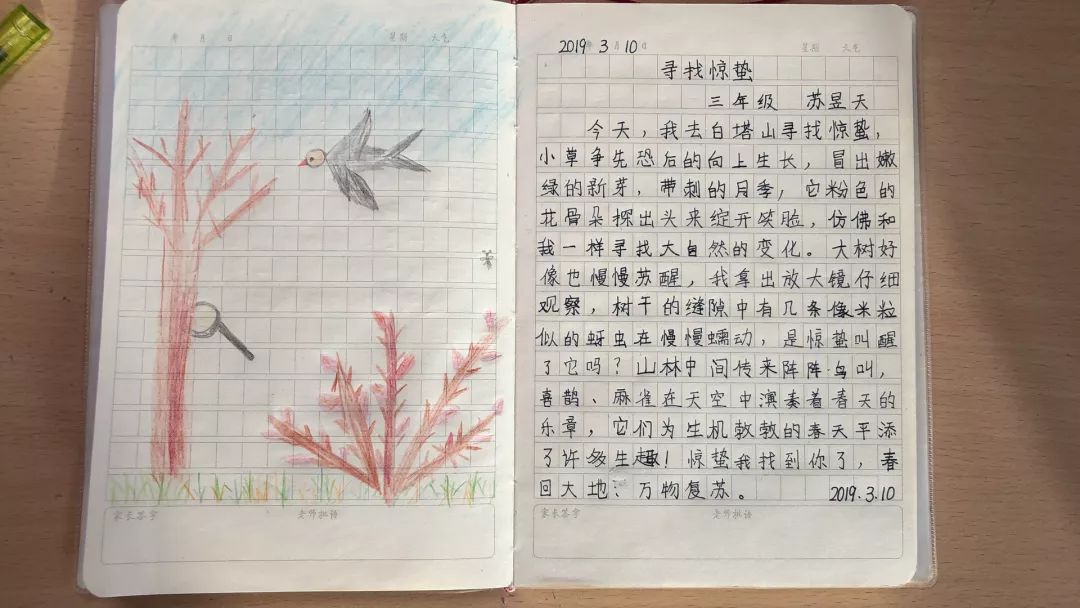 年 月 日 星期 天气
2019年 3月 10日 星期 天气
寻找惊蛰
三年级 苏昱天
今天，我去白塔山寻找惊蛰，
小草争先恐后的向上生长，冒出嫩
绿的新芽，带刺的月季，它粉色的
花骨朵探出头来绽开笑脸，仿佛和
我一样寻找大自然的变化。大树好
像也慢慢苏醒，我拿出放大镜仔细
观察，树干的缝隙中有几条像米粒
似的蚜虫在慢慢蠕动，是惊蛰叫醒
了它吗？山林中间传来阵阵鸟叫，
喜鹊、麻雀在天空中演奏着春天的
乐章，它们为生机敩敩的春天平添
了许多生趣！惊蛰我找到你了，春
回大地、万物复苏。 2019.3.10
家长签字 老师批语
家长签字 老师批语